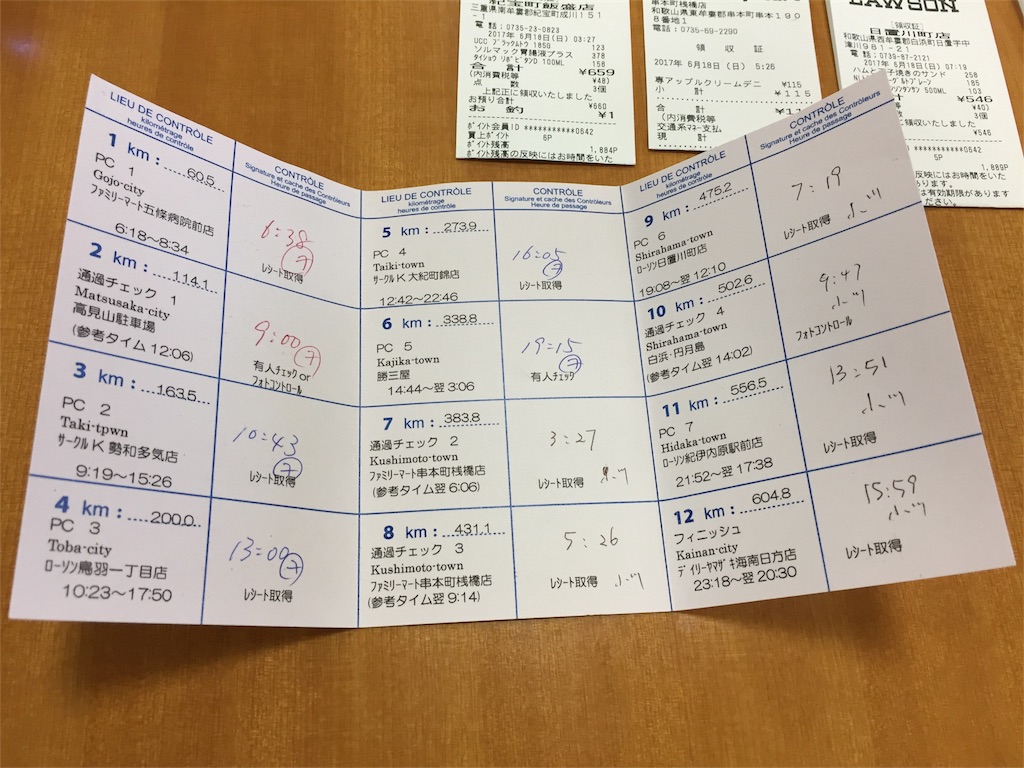 紀宝町飯盛店
三重県南牟婁郡紀宝町成川151
-1
電話:0735-23-0823
2017年 6月18日(日) 03:27
UCC ブラックムトウ 185G 123
ソルマック胃腸液プラス 378
タイショウ リポビタンD 100ML 158
合計 ¥659
(内消費税等 ¥48)
点数 3個
上記正に領収いたしました
お預り合計 ¥660
お釣 ¥1
ポイント会員ID ***********0642
買上ポイント 6P
ポイント残高 1,884P
ポイント残高の反映にはお時間をいた
串本町桟橋店
和歌山県東牟婁郡串本町串本190
8番地1
電話:0735-69-2290
領収証
2017年 6月18日(日) 5:26
専アップルクリームデニ ¥115
小計 ¥115
合計
(内消費税等
交通系マネー支払
現計
LAWSON
[領収証]
日置川町店
和歌山県西牟婁郡白浜町日置字中
津川981-21
電話:0739-87-2121
2017年 6月18日(日) 07:19
258
185
500ML 103
¥546
¥40)
3個
領収いたしました
¥546
***********0642
5P
1,889P
LIEU DE CONTRÔLE
kilométrage
heures de contrôle
CONTRÔLE
Signature et cache des Contrôleurs
Heure de passage
1 km: 60.5
PC 1
Gojo-city
ファミリーマート五條病院前店
6:18~8:34
6:38
⑦
レシート取得
2 km: 114.1
通過チェック 1
Matsusaka-city
高見山駐車場
(参考タイム 12:06)
9:00 ⑦
有人チェック or
フォトコントロール
3 km: 163.5
PC 2
Taki-tpwn
サークルK 勢和多気店
9:19~15:26
10:43
⑦
レシート取得
4 km: 200.0
PC 3
Toba-city
ローソン鳥羽一丁目店
10:23~17:50
13:00
⑦
レシート取得
LIEU DE CONTRÔLE
kilométrage
heures de contrôle
CONTRÔLE
Signature et cache des Contrôleurs
Heure de passage
5 km: 273.9
PC 4
Taiki-town
サークルK 大紀町錦店
12:42~22:46
16:05
⑦
レシート取得
6 km: 338.8
PC 5
Kajika-town
勝三屋
14:44~翌 3:06
19:15
⑦
有人チェック
7 km: 383.8
通過チェック 2
Kushimoto-town
ファミリーマート串本町桟橋店
(参考タイム翌 6:06)
3:27
レシート取得
8 km: 431.1
通過チェック 3
Kushimoto-town
ファミリーマート串本町桟橋店
(参考タイム翌 9:14)
5:26
レシート取得
LIEU DE CONTRÔLE
kilométrage
heures de contrôle
CONTRÔLE
Signature et cache des Contrôleurs
Heure de passage
9 km: 475.2
PC 6
Shirahama-town
ローソン日置川町店
19:08~翌 12:10
7:19
レシート取得
10 km: 502.6
通過チェック 4
Shirahama-town
白浜・円月島
(参考タイム翌 14:02)
9:47
フォトコントロール
11 km: 556.5
PC 7
Hidaka-town
ローソン紀伊内原駅前店
21:52~翌 17:38
13:51
レシート取得
12 km: 604.8
フィニッシュ
Kainan-city
デイリーヤマザキ海南日方店
23:18~翌 20:30
15:59
レシート取得